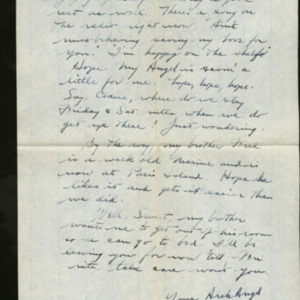 not as well. There's a song on
the radio right now, "Aint
misbehaving saving my love for
you." I'm happy on the shelf."
Hope My Angel is savin' a
little for me, hope, hope, hope.
Say Crane, where do we stay
Friday & Sat. nites, when we do
get up there? Just wondering.
By the way, my brother
is a week old Marine and is
now at Paris Island. Hope he
likes it and gets it easier than
we did.
Well Sweet, my brother
wants me to get out of his room
so he can go to bed. I'll be
leaving you for now till
nite, take care wont you.
Your